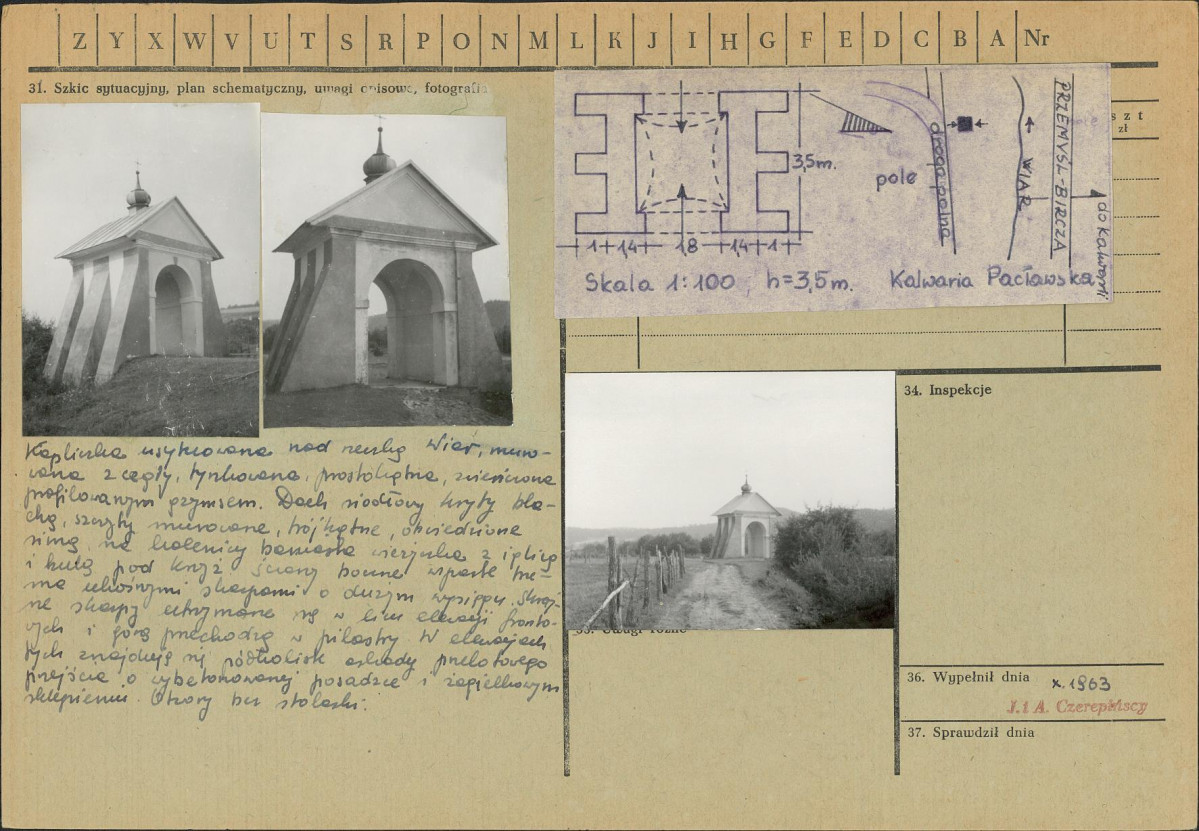 Z Y X W V U T S R P O N M L K J I H G F E D C B A Nr
31. Szkic sytuacyjny, plan schematyczny, uwagi opisowe, fotografia
szt
zł
3,5m.
1 1,4 1,8 1,4 1
Skala 1:100 h=3,5m.
pole
droga polna
WIAR
PRZEMYŚL-BIRCZA
do Kalwarii
Kalwaria Pacławska
Kapliczka usytuowana nad rzeką Wiar, muro-
wana z cegły, tynkowana, prostokątna, zwieńczona
profilowanym gzymsem. Dach siodłowy kryty bla-
chą, szczyty murowane, trójkątne, obwiedzione
simą, na kalenicy baniasta wieżyczka z iglicą
i kulą pod krzyż. Ściany boczne wsparte trze-
ma ukośnymi skarpami o dużym wysięgu. Skraj-
ne skarpy utrzymane są w licu elewacji fronto-
wych i górą przechodzą w pilastry. W elewacjach
tych znajdują się półkoliste arkady przelotowego
przejścia o wybetonowanej posadzce i żagielkowym
sklepieniu. Otwory bez stolarki.
34. Inspekcje
35. Uwagi różne
36. Wypełnił dnia x.1963
J. i A. Czerepińscy
37. Sprawdził dnia